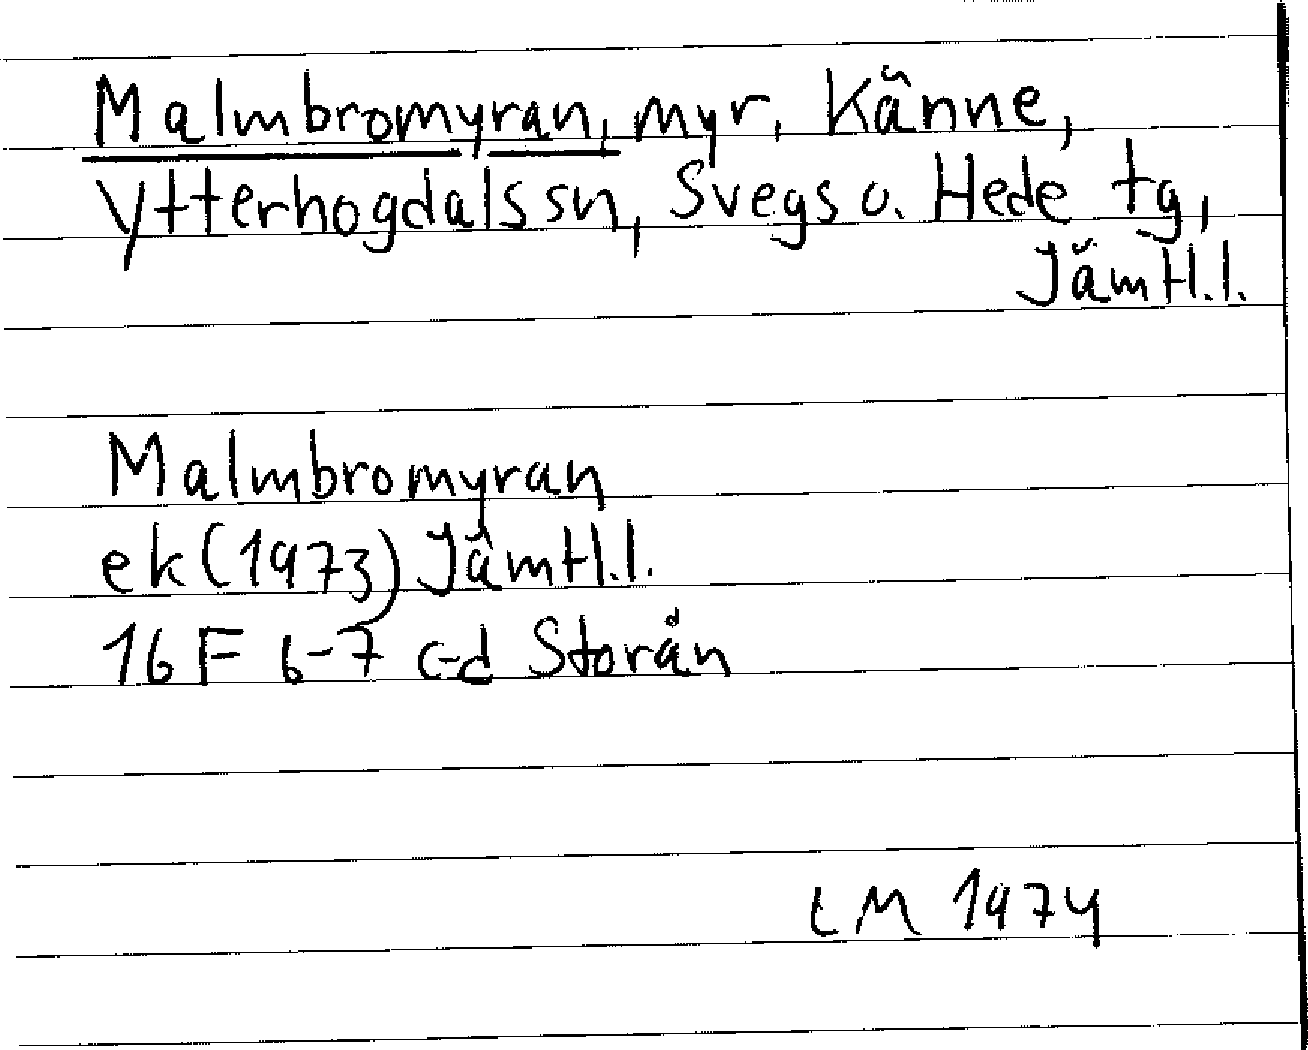 Malmbromyran, myr, Känne,
Ytterhogdals sn, Svegs o. Hede tg,
JämtH.l.
Malmbromyran
ek (1973) JämtH.l.
16 F 6-7 c-d Storån
LM 1974